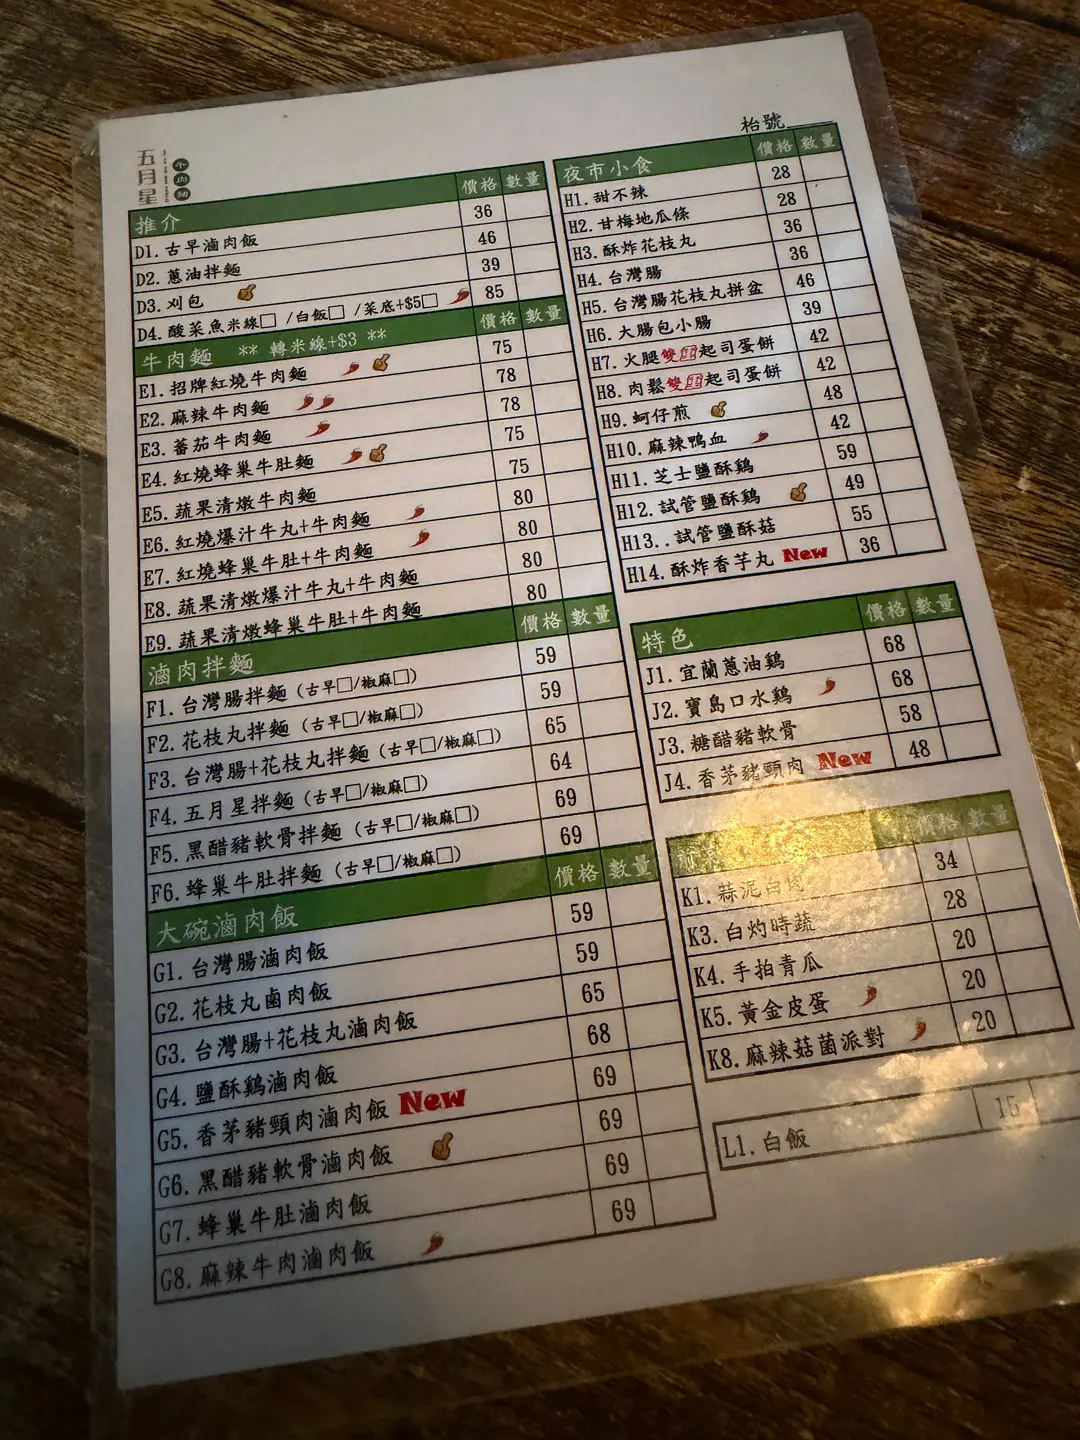 五月星
牛肉麵
枱號
推介 價格 數量
D1. 古早滷肉飯 36
D2. 蔥油拌麵 46
D3. 刈包 39
D4. 酸菜魚米線□ /白飯□ /菜底+$5□ 85
牛肉麵 ** 轉米線+$3 ** 價格 數量
E1. 招牌紅燒牛肉麵 75
E2. 麻辣牛肉麵 78
E3. 蕃茄牛肉麵 78
E4. 紅燒蜂巢牛肚麵 75
E5. 蔬果清燉牛肉麵 75
E6. 紅燒爆汁牛丸+牛肉麵 80
E7. 紅燒蜂巢牛肚+牛肉麵 80
E8. 蔬果清燉爆汁牛丸+牛肉麵 80
E9. 蔬果清燉蜂巢牛肚+牛肉麵 80
滷肉拌麵 價格 數量
F1. 台灣腸拌麵 (古早□/椒麻□) 59
F2. 花枝丸拌麵 (古早□/椒麻□) 59
F3. 台灣腸+花枝丸拌麵 (古早□/椒麻□) 65
F4. 五月星拌麵 (古早□/椒麻□) 64
F5. 黑醋豬軟骨拌麵 (古早□/椒麻□) 69
F6. 蜂巢牛肚拌麵 (古早□/椒麻□) 69
大碗滷肉飯 價格 數量
G1. 台灣腸滷肉飯 59
G2. 花枝丸鹵肉飯 59
G3. 台灣腸+花枝丸滷肉飯 65
G4. 鹽酥鷄滷肉飯 68
G5. 香茅豬頸肉滷肉飯 New 69
G6. 黑醋豬軟骨滷肉飯 69
G7. 蜂巢牛肚滷肉飯 69
G8. 麻辣牛肉滷肉飯 69
夜市小食 價格 數量
H1. 甜不辣 28
H2. 甘梅地瓜條 28
H3. 酥炸花枝丸 36
H4. 台灣腸 36
H5. 台灣腸花枝丸拼盆 46
H6. 大腸包小腸 39
H7. 火腿雙起司蛋餅 42
H8. 肉鬆雙起司蛋餅 42
H9. 蚵仔煎 48
H10. 麻辣鴨血 42
H11. 芝士鹽酥鷄 59
H12. 試管鹽酥鷄 49
H13.. 試管鹽酥菇 55
H14. 酥炸香芋丸 New 36
特色 價格 數量
J1. 宜蘭蔥油鷄 68
J2. 寶島口水鷄 68
J3. 糖醋豬軟骨 58
J4. 香茅豬頸肉 New 48
價格 數量
K1. 蒜泥白肉 34
K3. 白灼時蔬 28
K4. 手拍青瓜 20
K5. 黃金皮蛋 20
K8. 麻辣菇菌派對 20
L1. 白飯 15